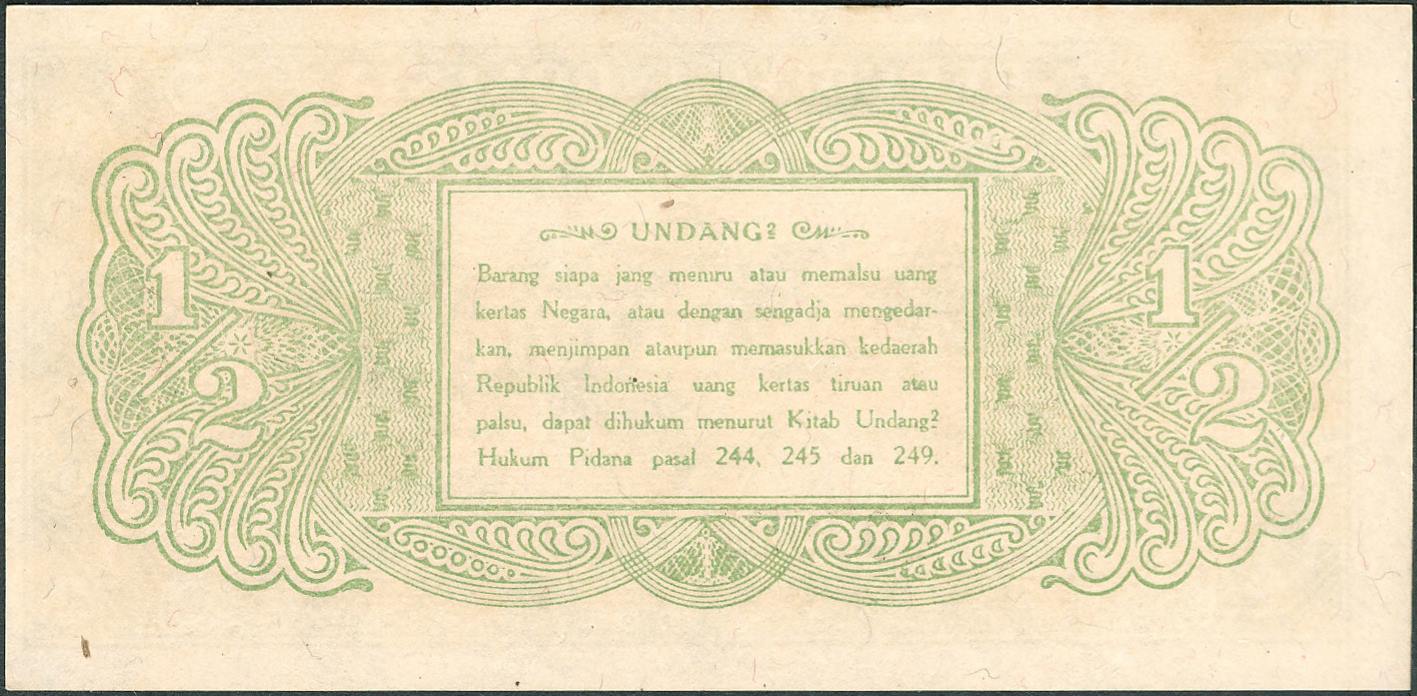 UNDANG²
Barang siapa jang meniru atau memalsu uang
kertas Negara, atau dengan sengadja mengedar-
kan, menjimpan ataupun memasukkan kedaerah
Republik Indonesia uang kertas tiruan atau
palsu, dapat dihukum menurut Kitab Undang²
Hukum Pidana pasal 244, 245 dan 249.
1/2
1/2